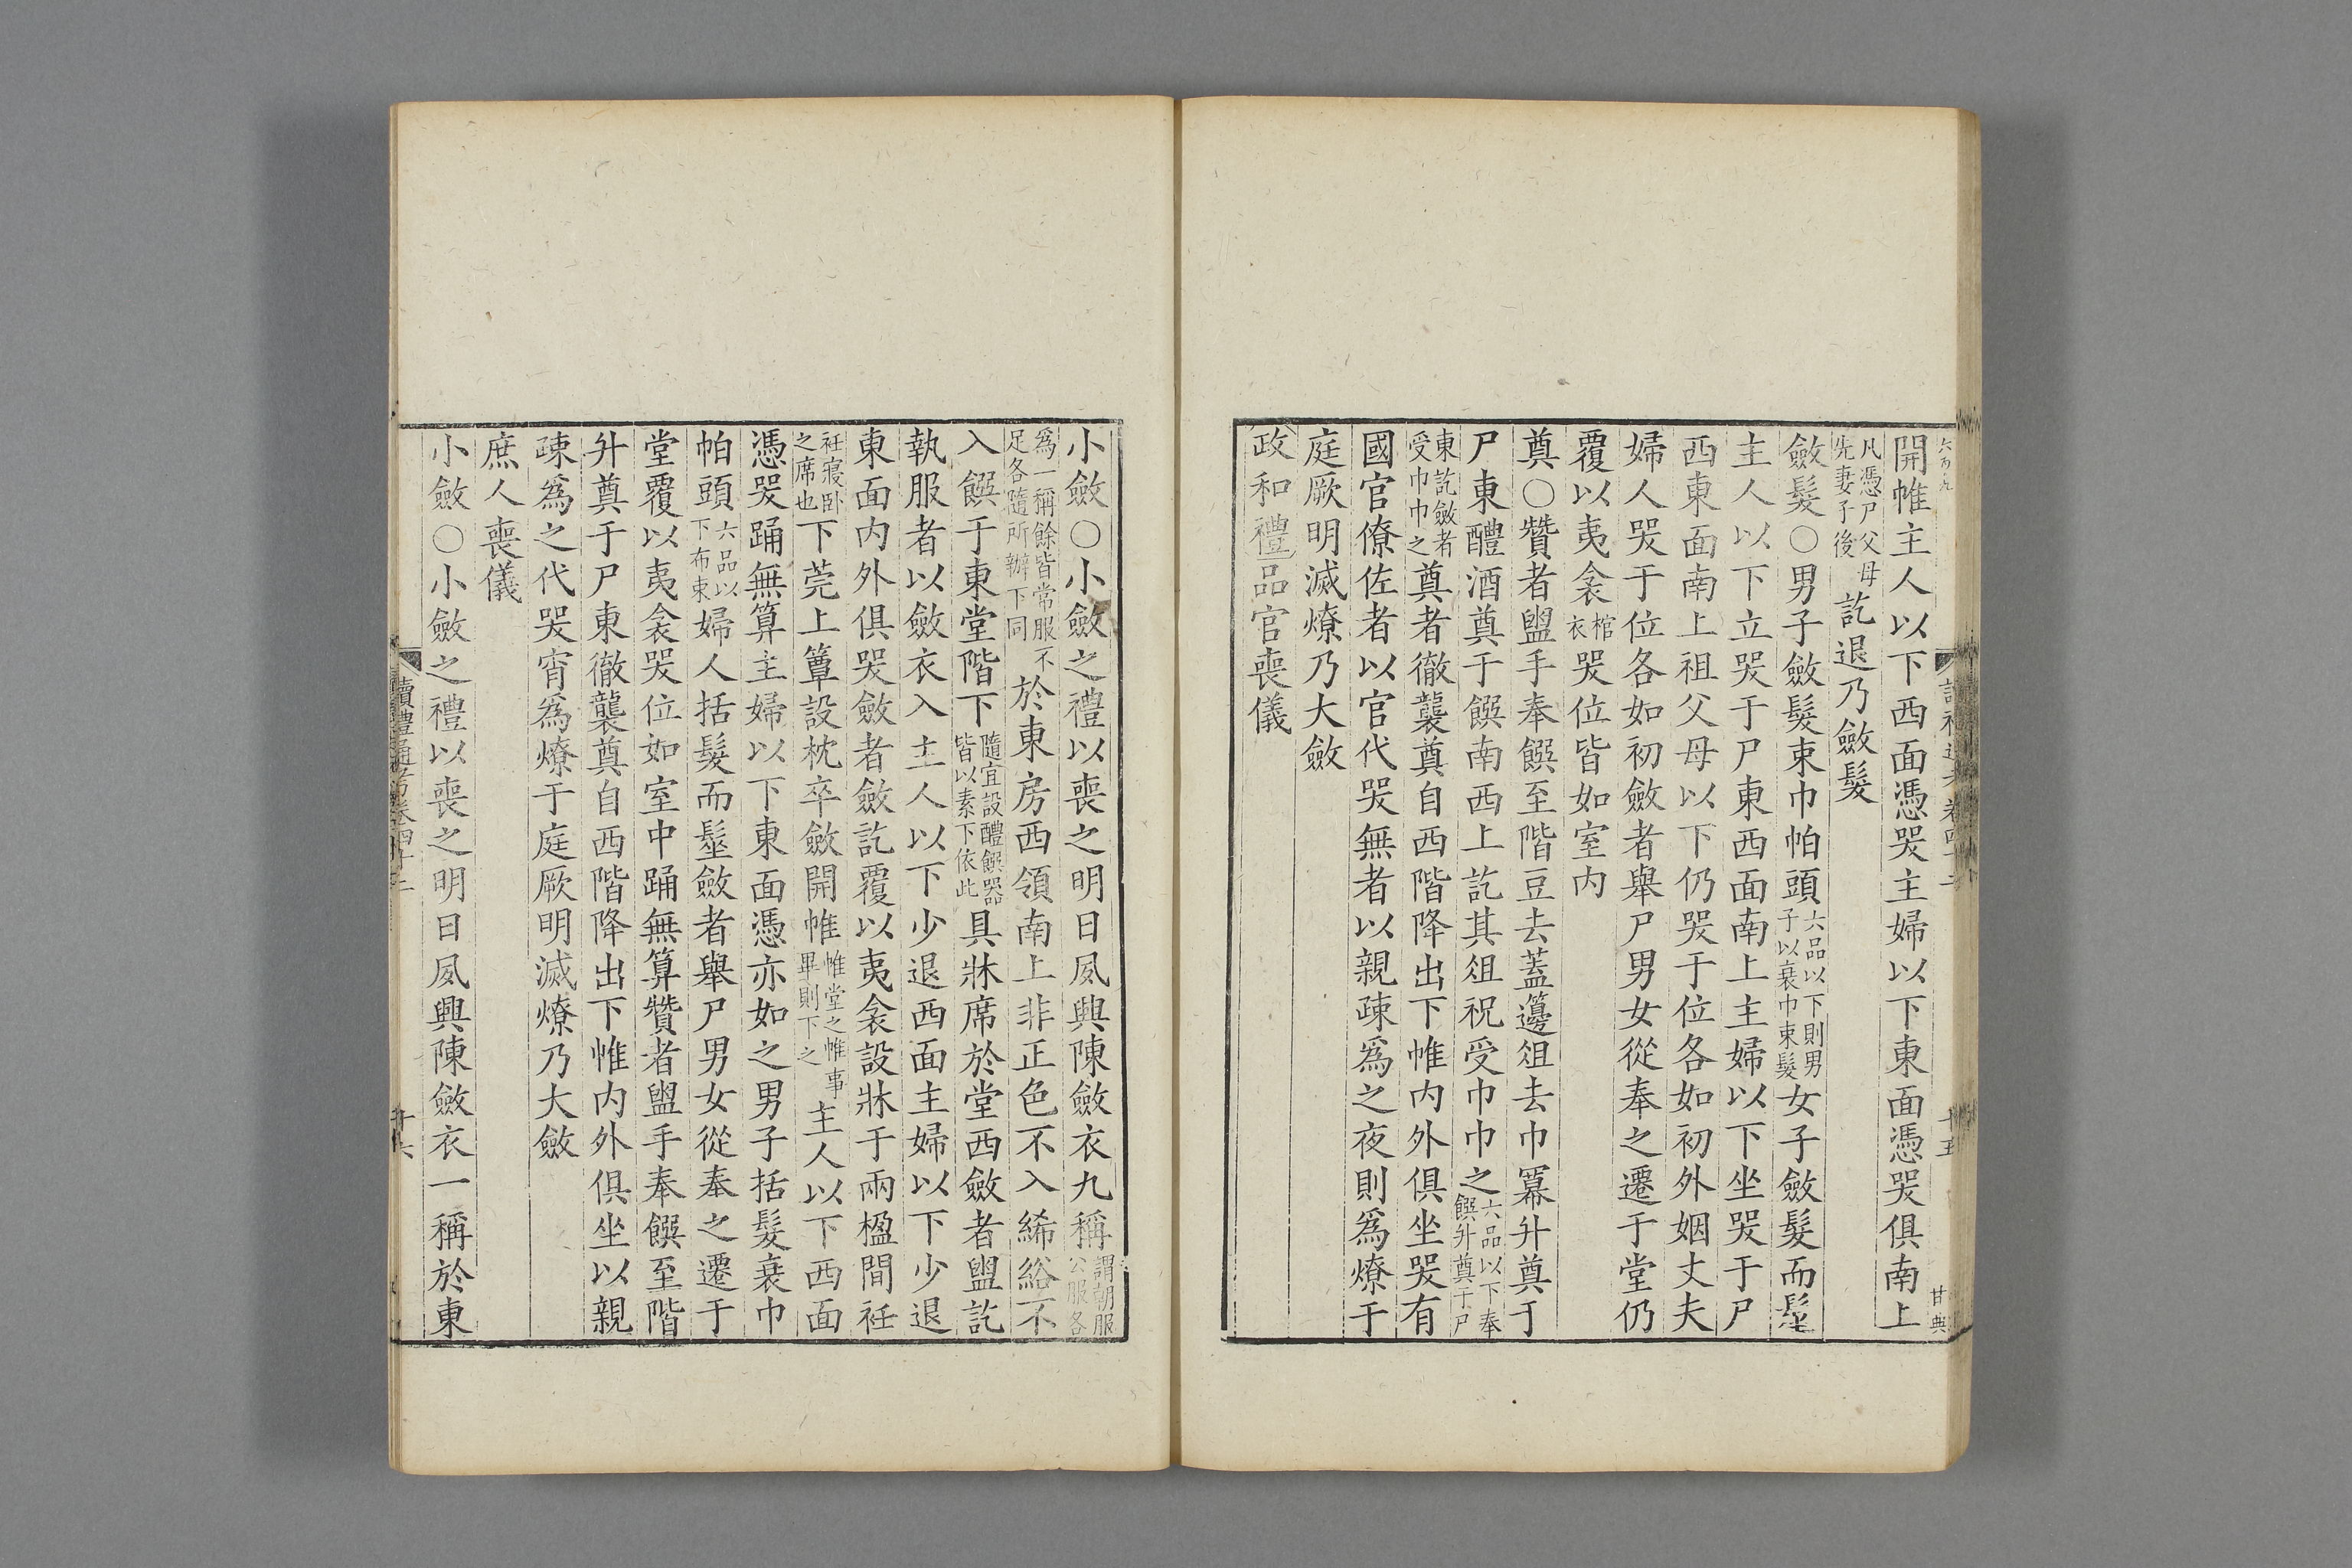 開帷主人以下西面憑哭主婦以下東面憑哭俱南上
凡憑尸父母先妻子後訖退乃斂髮
斂髮○男子斂髮束巾帕頭六品以下則男子以衰巾束髮女子斂髮而髽
主人以下立哭于尸東西面南上主婦以下坐哭于尸
西東面南上祖父母以下仍哭于位各如初外姻丈夫
婦人哭于位各如初斂者舉尸男女從奉之遷于堂仍
覆以夷衾棺衣哭位皆如室内
奠○贊者盥手奉饌至階豆去蓋籩俎去巾冪升奠于
尸東醴酒奠于饌南西上訖其俎祝受巾巾之六品以下奉饌升奠于尸
東訖斂者受巾巾之奠者徹襲奠自西階降出下帷内外俱坐哭有
國官僚佐者以官代哭無者以親疎爲之夜則爲燎于
庭厥明滅燎乃大斂
政和禮品官喪儀
小斂○小斂之禮以喪之明日夙興陳斂衣九稱謂朝服公服各
爲一稱餘皆常服不足各隨所辦下同於東房西領南上非正色不入絺綌不
入饌于東堂階下隨宜設醴饌器皆以素下依此具牀席於堂西斂者盥訖
執服者以斂衣入主人以下少退西面主婦以下少退
東面内外俱哭斂者斂訖覆以夷衾設牀于兩楹間衽
衽寢卧之席也下莞上簟設枕卒斂開帷帷堂之帷事畢則下之主人以下西面
憑哭踊無算主婦以下東面憑亦如之男子括髮衰巾
帕頭六品以下布束婦人括髮而髽斂者舉尸男女從奉之遷于
堂覆以夷衾哭位如室中踊無算贊者盥手奉饌至階
升奠于尸東徹襲奠自西階降出下帷内外俱坐以親
疎爲之代哭宵爲燎于庭厥明滅燎乃大斂
庶人喪儀
小斂○小斂之禮以喪之明日夙興陳斂衣一稱於東
讀禮通考卷四十二